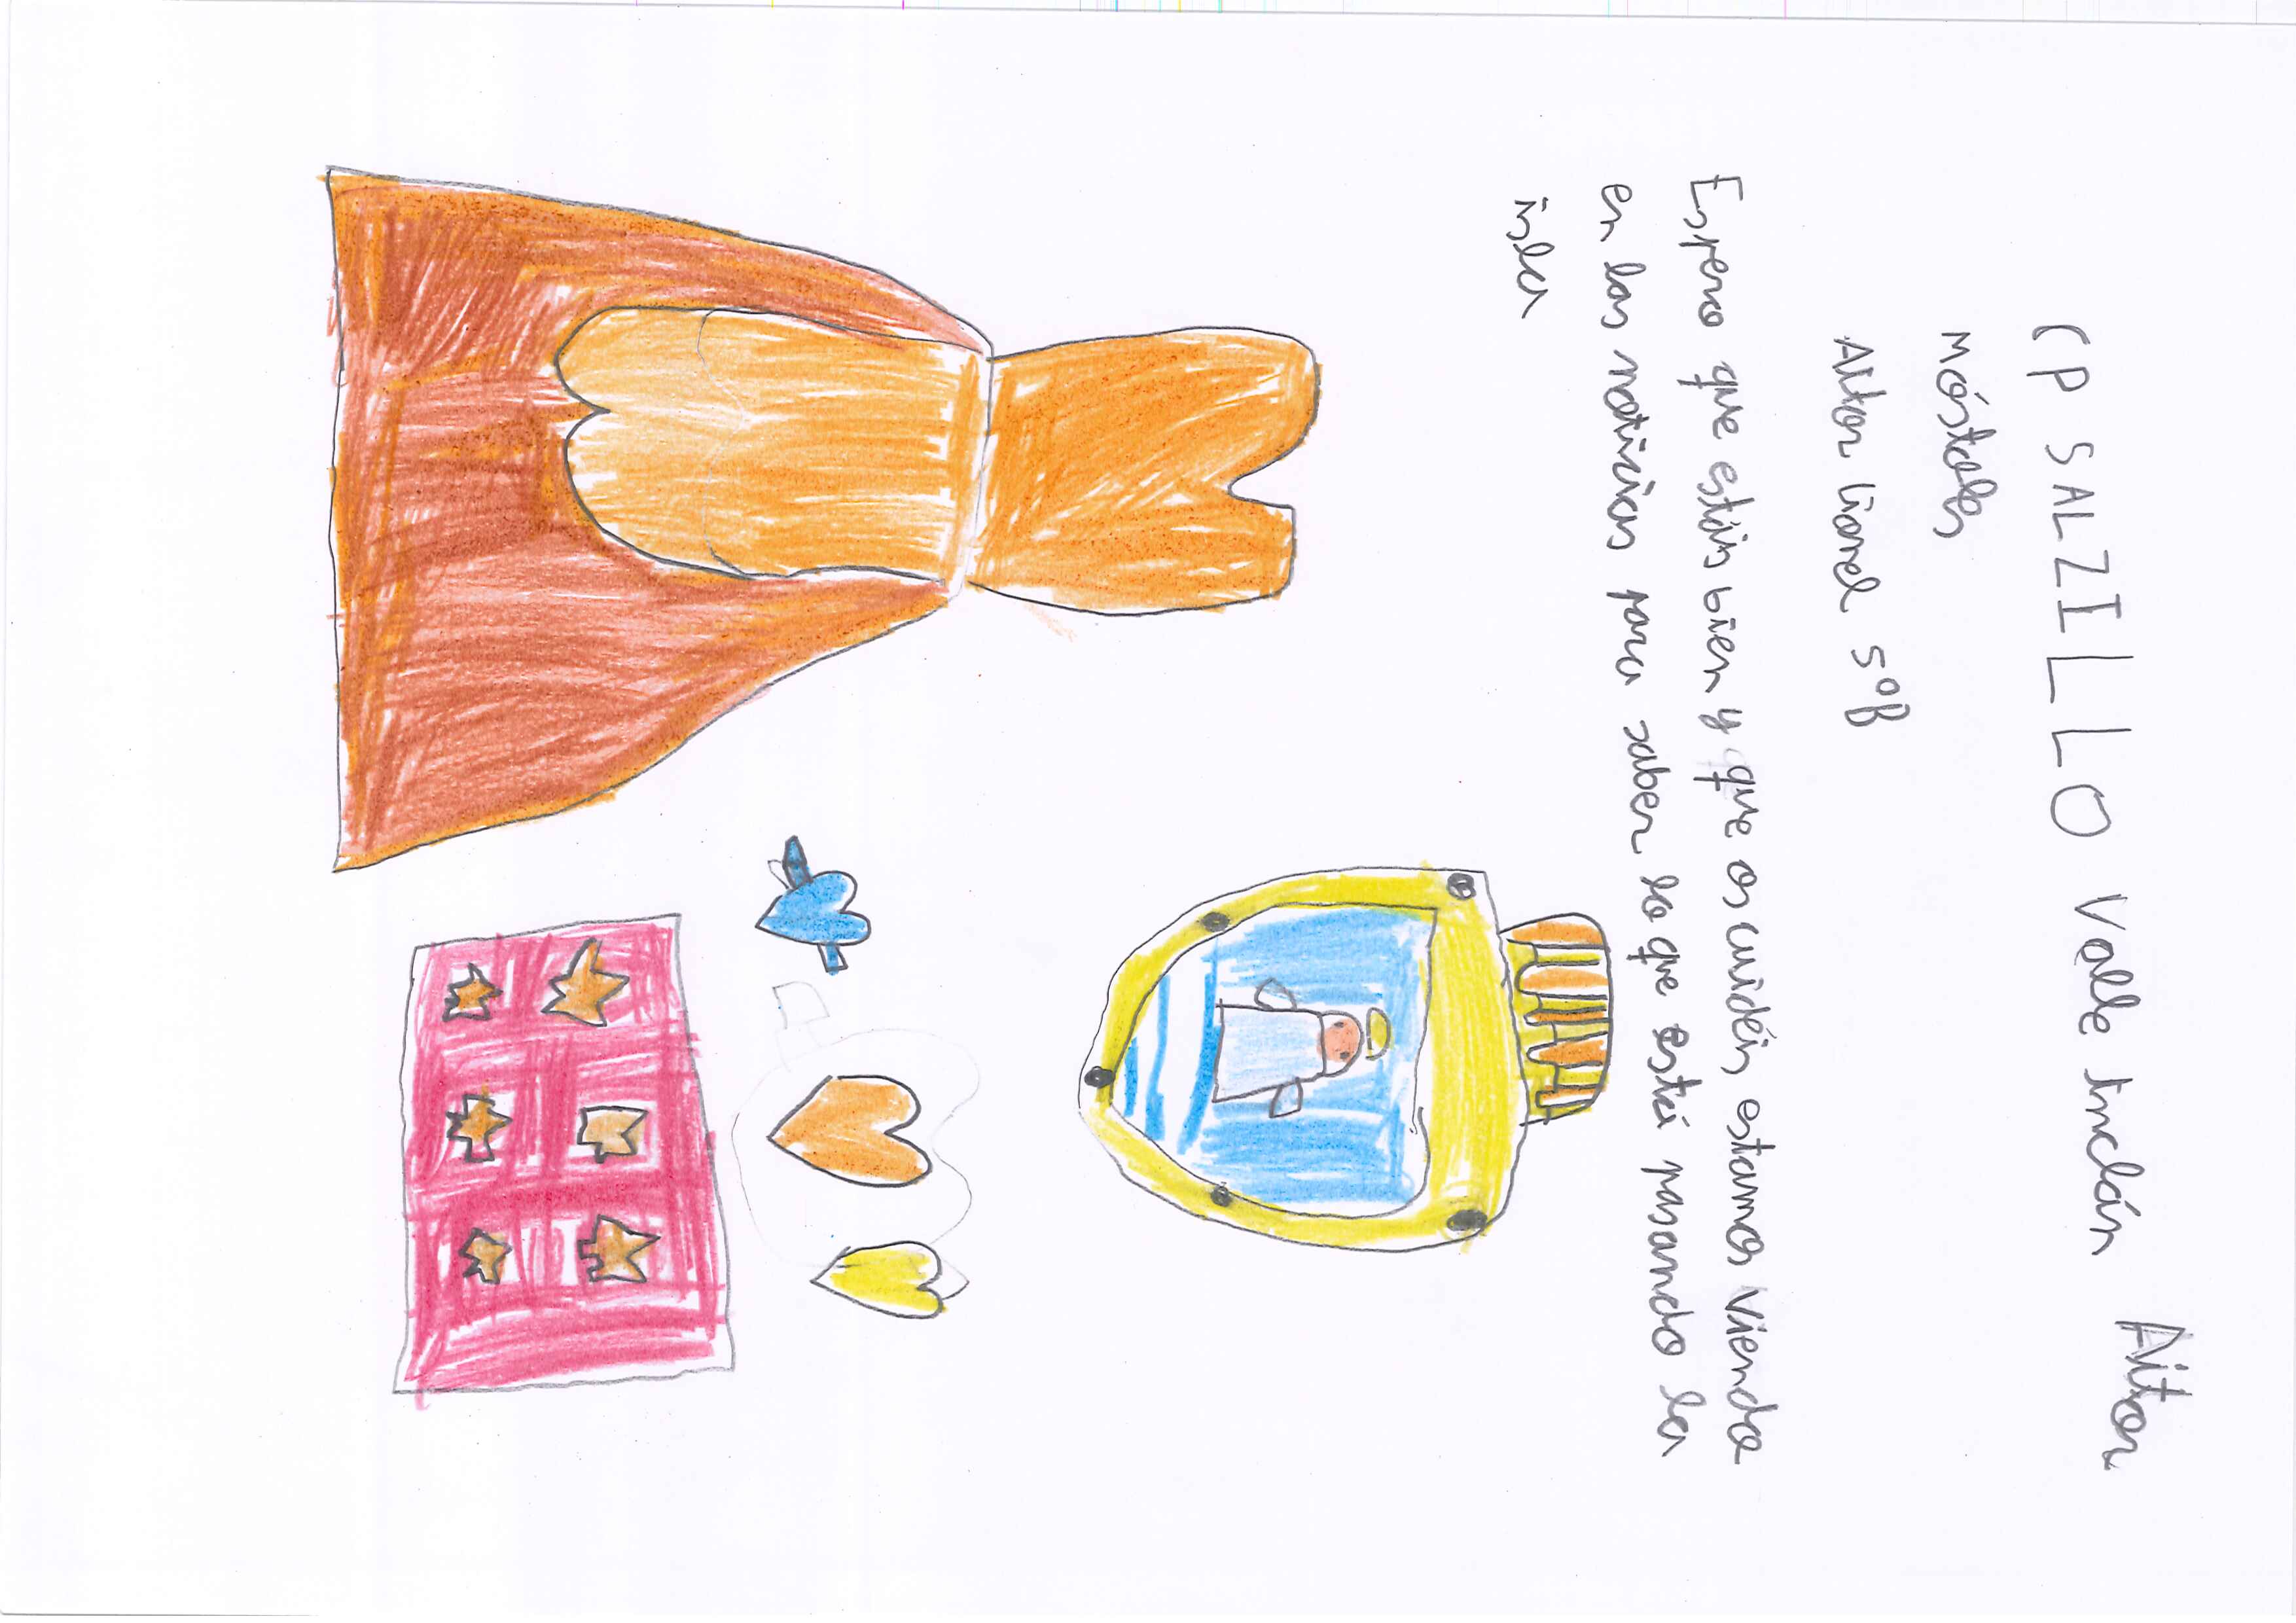 Aitor
CP SALZILLO Valle Inclán
Móstoles
Aitor Lionel 5ºB
Espero que estáis bien y que os cuidéis, estamos viendo
en las noticias para saber lo que está pasando la
isla